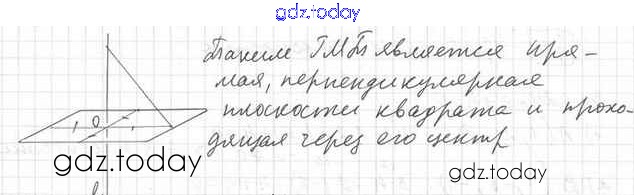 gdz.today
Таким ГМТ является пря-
мая, перпендикулярная
плоскости квадрата и прохо-
дящая через его центр
O
gdz.today
gdz.today